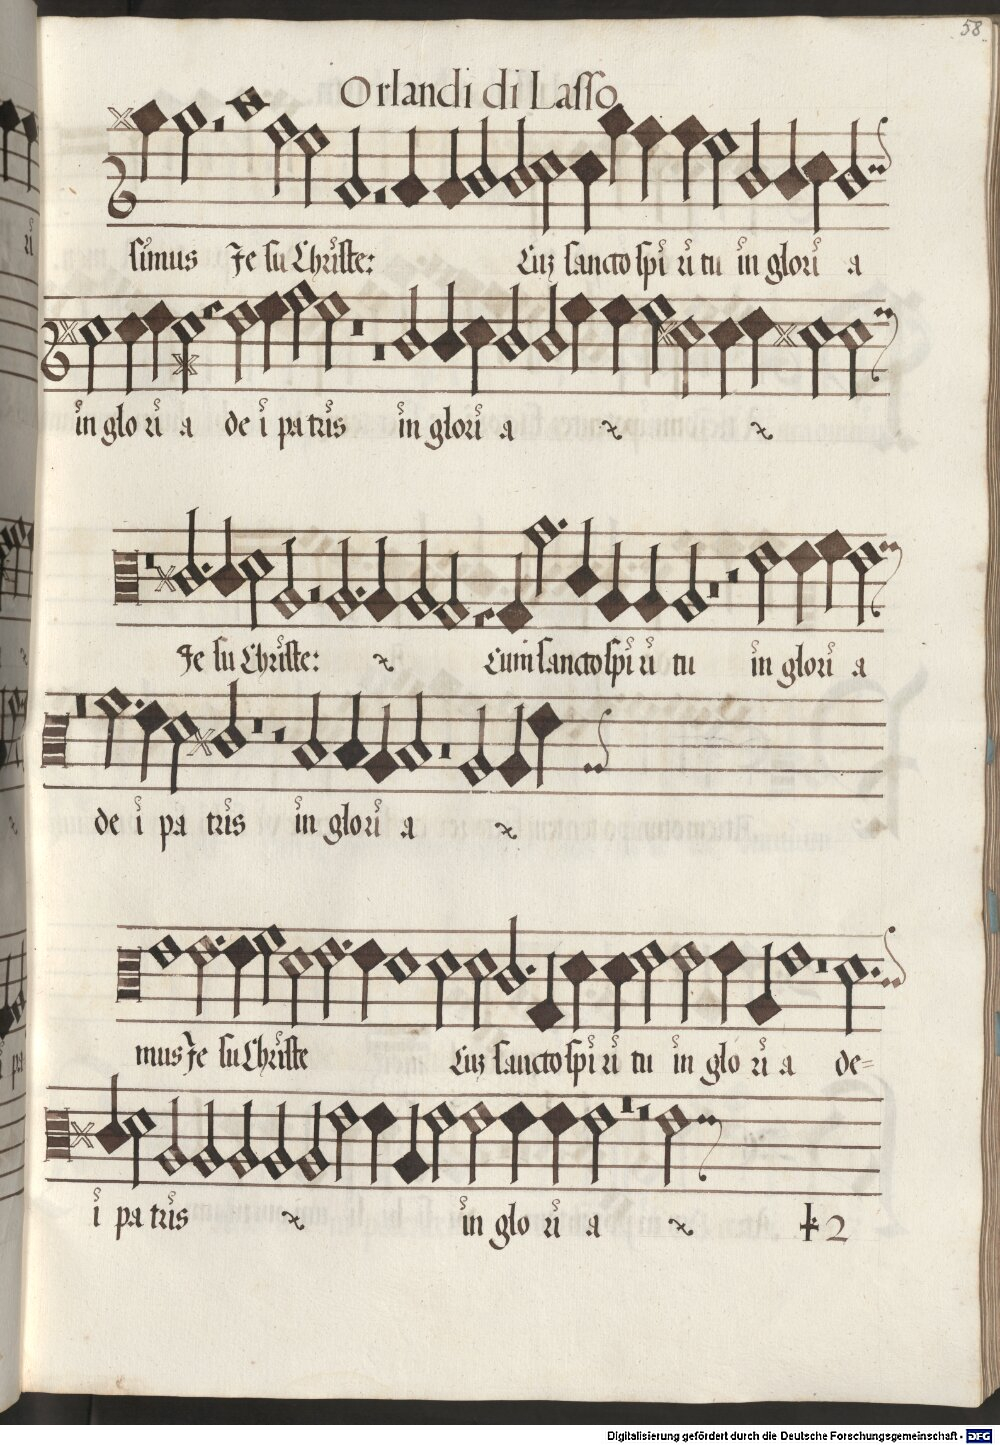 58
Orlandi di Lasso
simus Je su Christe: Cuz sancto spi ri tu in glori a
in glo ri a de i pa tris in glori a
Je su Christe: Cum sancto spi ri tu in glori a
de i pa tris in glori a
mus Je su Christe Cuz sancto spi ri tu in glo ri a de=
i pa tris in glo ri a 2
Digitalisierung gefördert durch die Deutsche Forschungsgemeinschaft - DFG